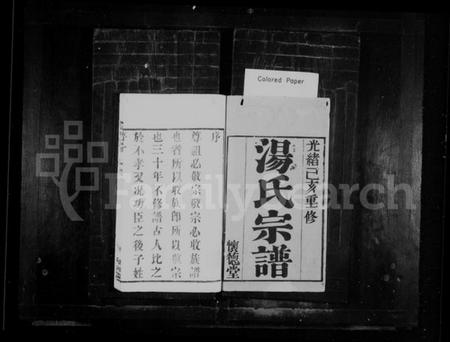 Colored Paper
光緒己亥重修
湯氏宗譜
懷德堂
序
尊祖必敬宗敬宗必收族譜
也者所以收族即所以敬宗
也三十年不修譜古人比之
於不孝況功臣之後子姓
FamilySearch